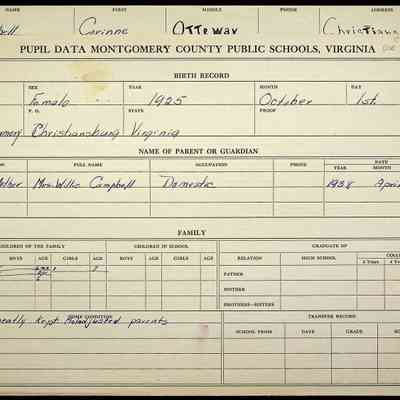 FIRST MIDDLE PHONE ADDRESS
bell Corinne Otteway Christians
PUPIL DATA MONTGOMERY COUNTY PUBLIC SCHOOLS, VIRGINIA
BIRTH RECORD
SEX YEAR MONTH DAY
Female 1925 October 1st.
P. O. STATE PROOF
Christiansburg Virginia
NAME OF PARENT OR GUARDIAN
FULL NAME OCCUPATION PHONE DATE
YEAR MONTH
other Mrs. Willie Campbell Domestic 1938 Apri
FAMILY
CHILDREN OF THE FAMILY CHILDREN IN SCHOOL GRADUATE OF
BOYS AGE GIRLS AGE BOYS AGE GIRLS AGE RELATION HIGH SCHOOL
2 Years 4 Years
FATHER
MOTHER
BROTHERS—SISTERS
HOME CONDITION TRANSFER RECORD
neatly kept. Maladjusted parents
SCHOOL FROM DATE GRADE